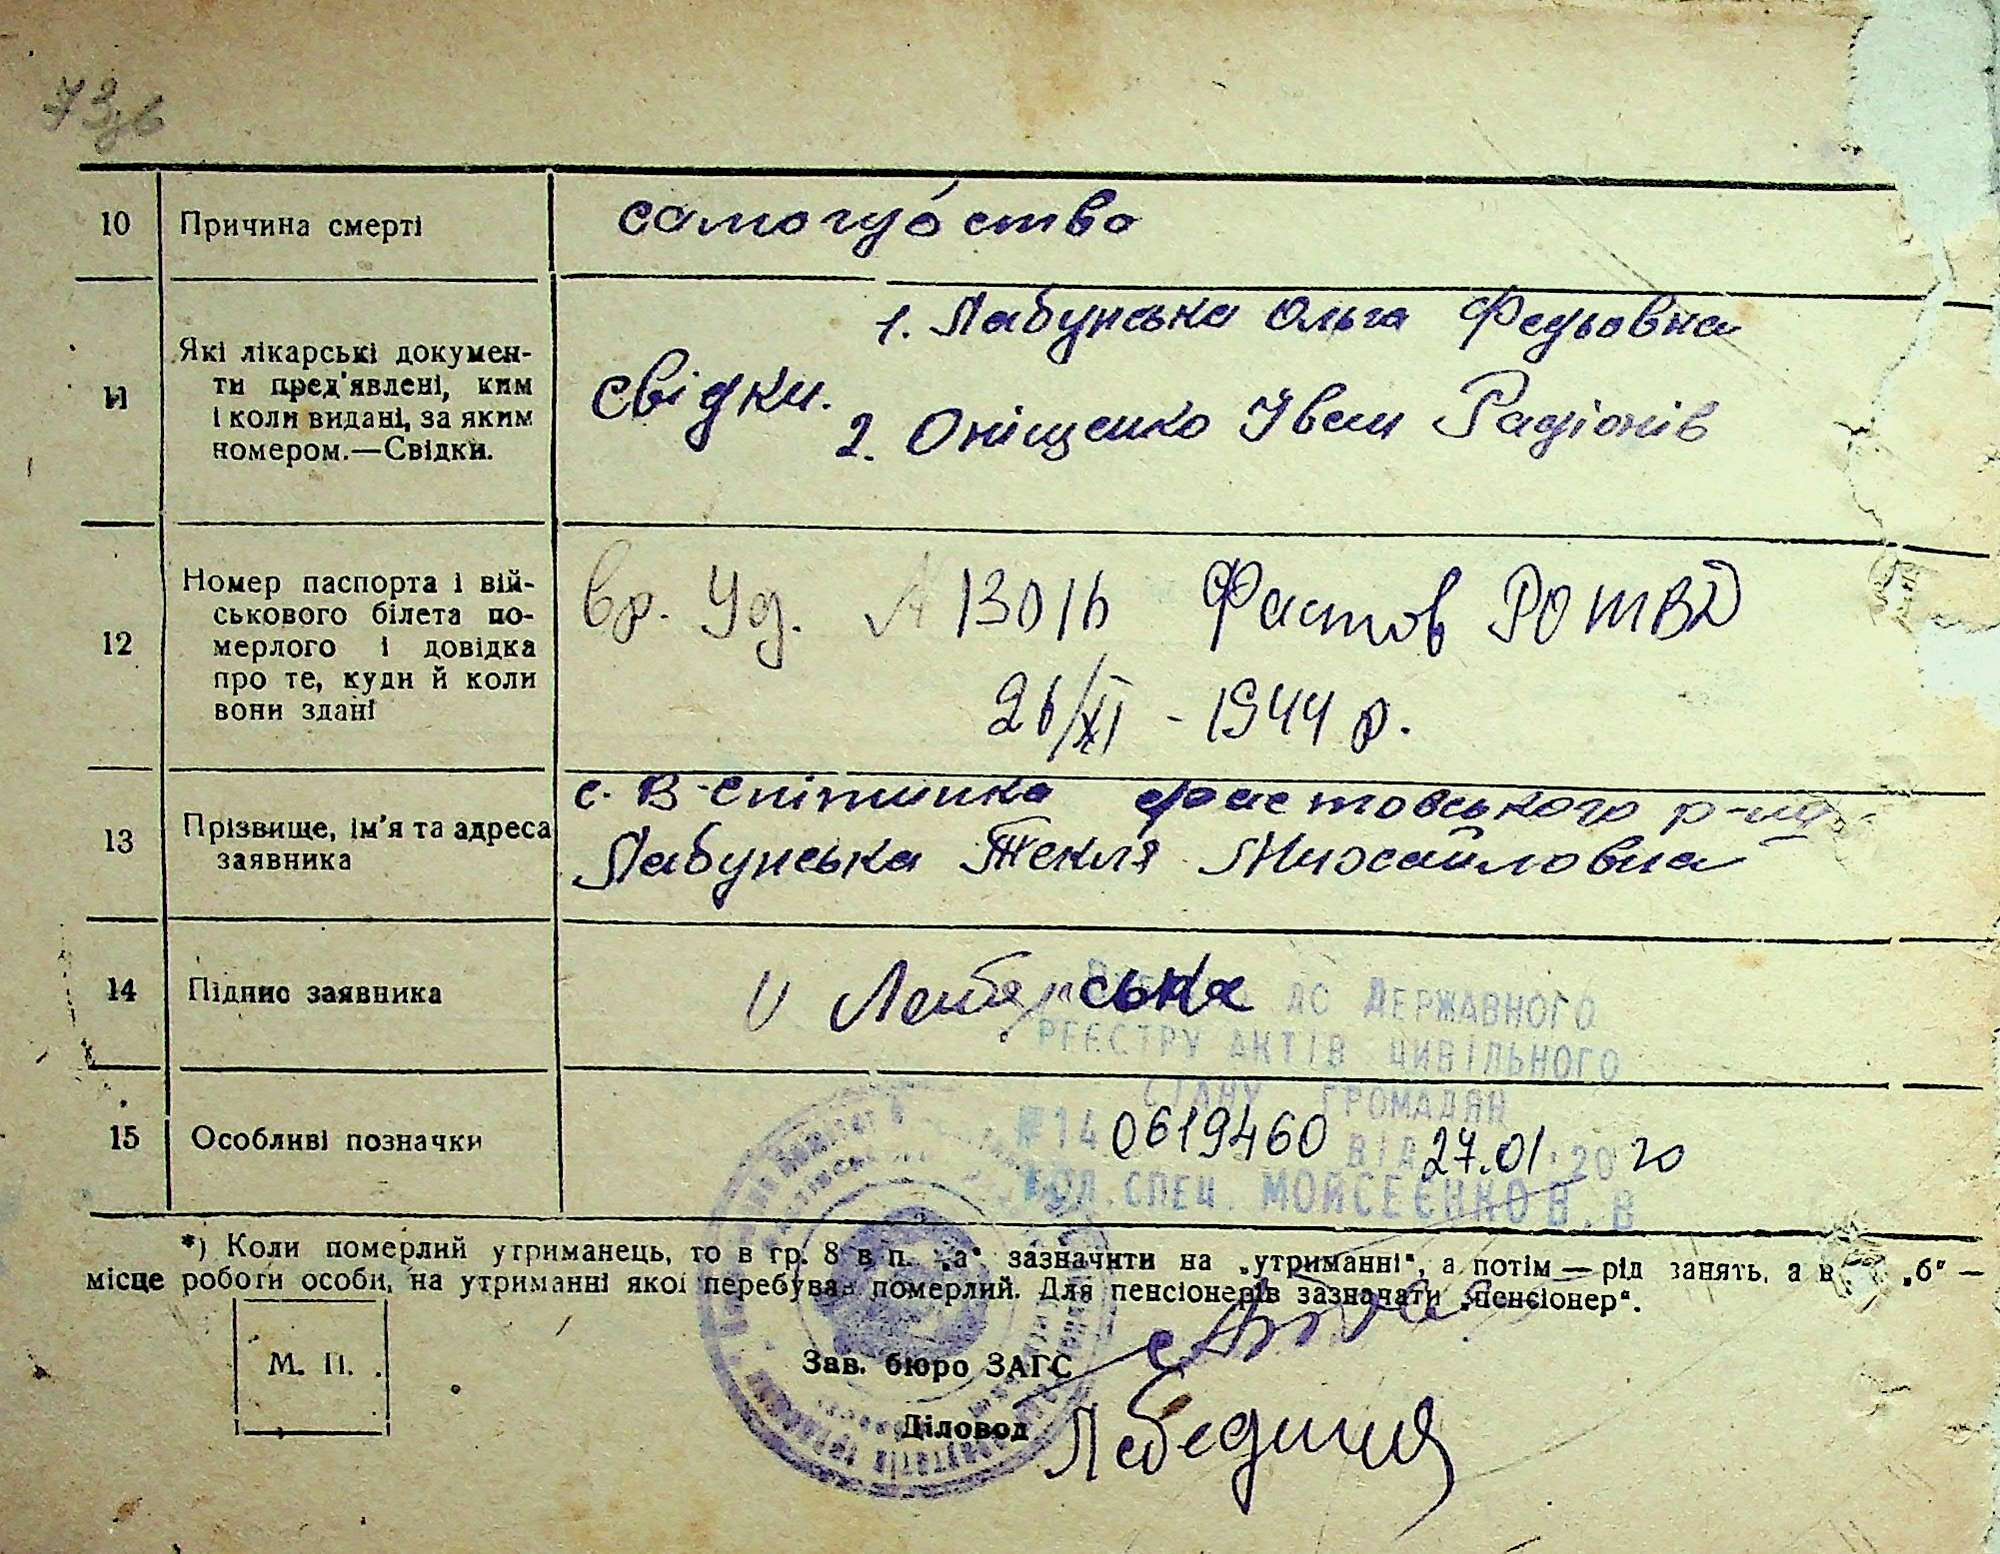 73зв
10 Причина смерті самогубство
11 Які лікарські докумен-
ти пред'явлені, ким
і коли видані, за яким
номером.—Свідки.
Свідки. 1. Лабунська Ольга Федьовна
2. Оніщенко Іван Радіонів
12 Номер паспорта і вій-
ськового білета по-
мерлого і довідка
про те, куди й коли
вони здані
Вр. Уд. № 13016 Фастов РОМВД
26/XI - 1944 р.
13 Прізвище, ім'я та адреса
заявника
с. В-Снітинка Фастовського р-ну
Лабунська Текля Михайловна
14 Підпис заявника
Лабунська
до Державного
реєстру актів цивільного
стану громадян
№14 0619460 від 27.01.2020
гол.спец. Мойсеєнко В.В
15 Особливі позначки
*) Коли померлий утриманець, то в гр. 8 в п. „а“ зазначити на „утриманні“, а потім — рід занять, а в „б“ —
місце роботи особи, на утриманні якої перебував померлий. Для пенсіонерів зазначати „пенсіонер“.
М. П.
Зав. бюро ЗАГС
Діловод Лебедина